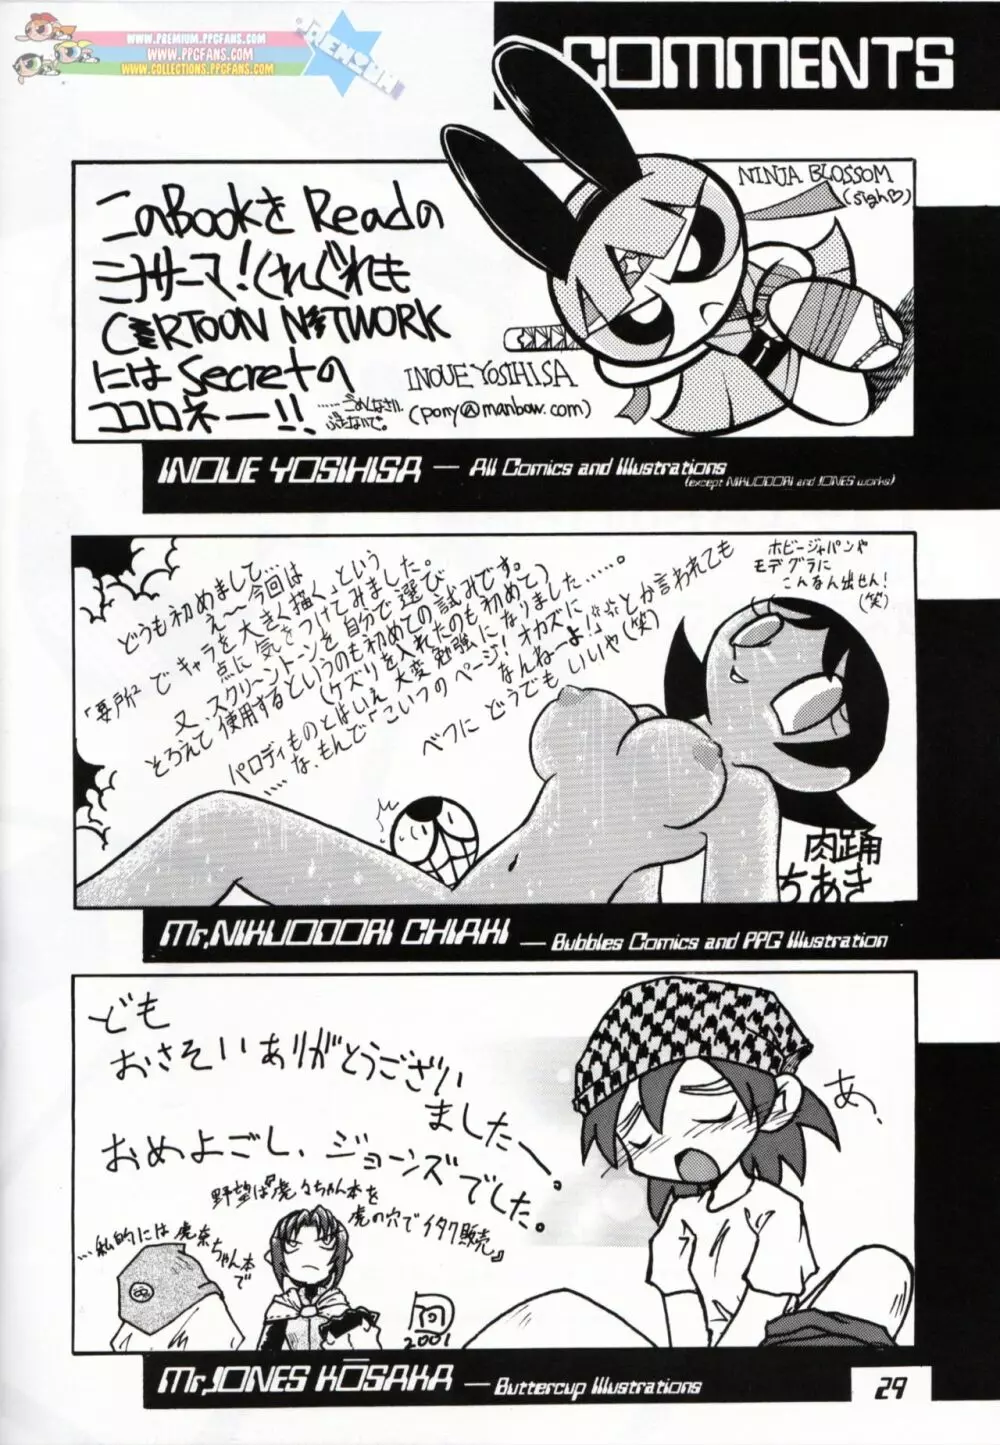 WWW.PREMIUM.PPGFANS.COM
WWW.PPGFANS.COM
WWW.COLLECTIONS.PPGFANS.COM
PREMIUM
COMMENTS
NINJA BLOSSOM
(sigh♡)
このBookを Readの
ミナサーマ!くれぐれも
CARTOON NETWORK
には Secretの
ココロネー!!
……ごめんなさい。
ぶたないで。
INOUE YOSIHISA
(pony@manbow.com)
INOUE YOSIHISA — All Comics and Illustrations
(except NIKUODORI and JONES works)
どうも初めまして…
え〜今回は
「要所」でキャラを大きく描く」という
点に気をつけてみました。
又、スクリーントーンを自分で選び
そろえて使用するというのも初めての試みです。
(ケズリを入れたのも初めて)
パロディものとはいえ大変勉強になりました……。
……な、もんで「こいつのページ!オカズに
なんねーよ!」とか言われても
べつにどうでもいいや(笑)
ホビージャパンや
モデグラに
こんなん出せん!
(笑)
肉踊
ちあき
Mr,NIKUODORI CHIAKI — Bubbles Comics and PPG Illustration
ども
おさそいありがとうござい
ましたー。
おめよごし、ジョーンズでした。
野望は『虎々ちゃん本を
虎の穴でイタク販売』
…私的には虎奈ちゃん本
で
あ、
2001
Mr,JONES KŌSAKA — Buttercup Illustrations
29